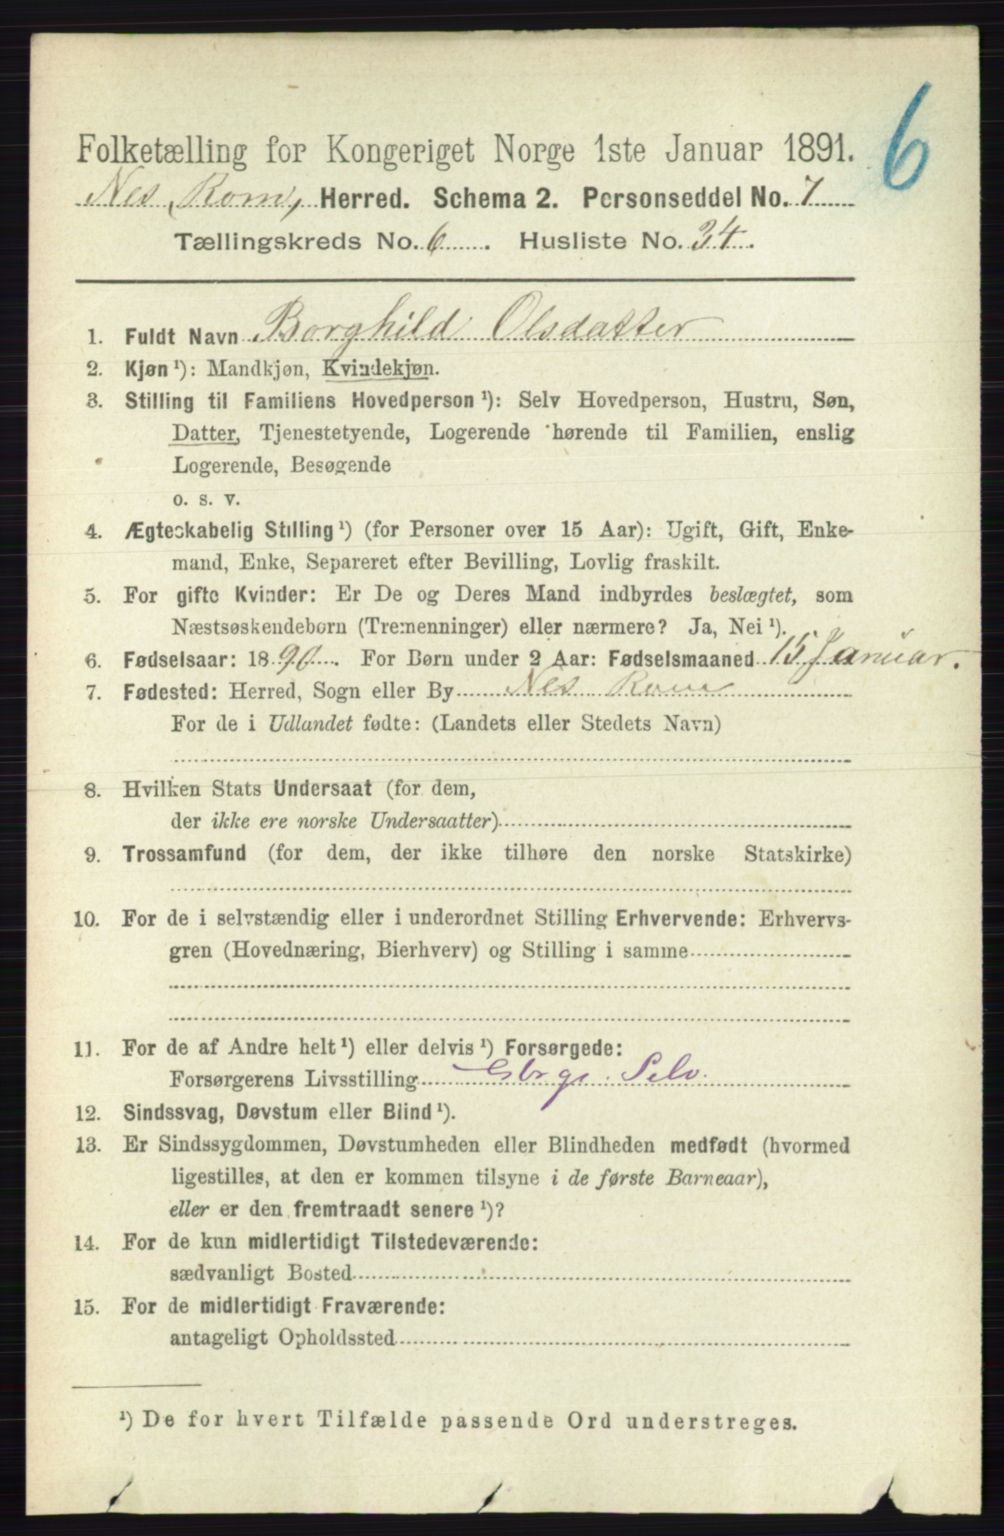 6
Folketælling for Kongeriget Norge 1ste Januar 1891.
Nes, Rom, Herred. Schema 2. Personseddel No. 7
Tællingskreds No. 6. Husliste No. 34.
1. Fuldt Navn Borghild Olsdatter
2. Kjøn ¹): Mandkjøn, Kvindekjøn.
3. Stilling til Familiens Hovedperson ¹): Selv Hovedperson, Hustru, Søn,
Datter, Tjenestetyende, Logerende hørende til Familien, enslig
Logerende, Besøgende
o. s. v.
4. Ægteskabelig Stilling ¹) (for Personer over 15 Aar): Ugift, Gift, Enke-
mand, Enke, Separeret efter Bevilling, Lovlig fraskilt.
5. For gifte Kvinder: Er De og Deres Mand indbyrdes beslægtet, som
Næstsøskendebørn (Tremenninger) eller nærmere? Ja, Nei ¹).
6. Fødselsaar: 1890. For Børn under 2 Aar: Fødselsmaaned 15 Januar.
7. Fødested: Herred, Sogn eller By Nes Rom
For de i Udlandet fødte: (Landets eller Stedets Navn)
8. Hvilken Stats Undersaat (for dem,
der ikke ere norske Undersaatter)
9. Trossamfund (for dem, der ikke tilhøre den norske Statskirke)
10. For de i selvstændig eller i underordnet Stilling Erhvervende: Erhvervs-
gren (Hovednæring, Bierhverv) og Stilling i samme
11. For de af Andre helt ¹) eller delvis ¹) Forsørgede:
Forsørgerens Livsstilling Gbrgr. Selv.
12. Sindssvag, Døvstum eller Blind ¹).
13. Er Sindssygdommen, Døvstumheden eller Blindheden medfødt (hvormed
ligestilles, at den er kommen tilsyne i de første Barneaar),
eller er den fremtraadt senere ¹)?
14. For de kun midlertidigt Tilstedeværende:
sædvanligt Bosted
15. For de midlertidigt Fraværende:
antageligt Opholdssted
¹) De for hvert Tilfælde passende Ord understreges.